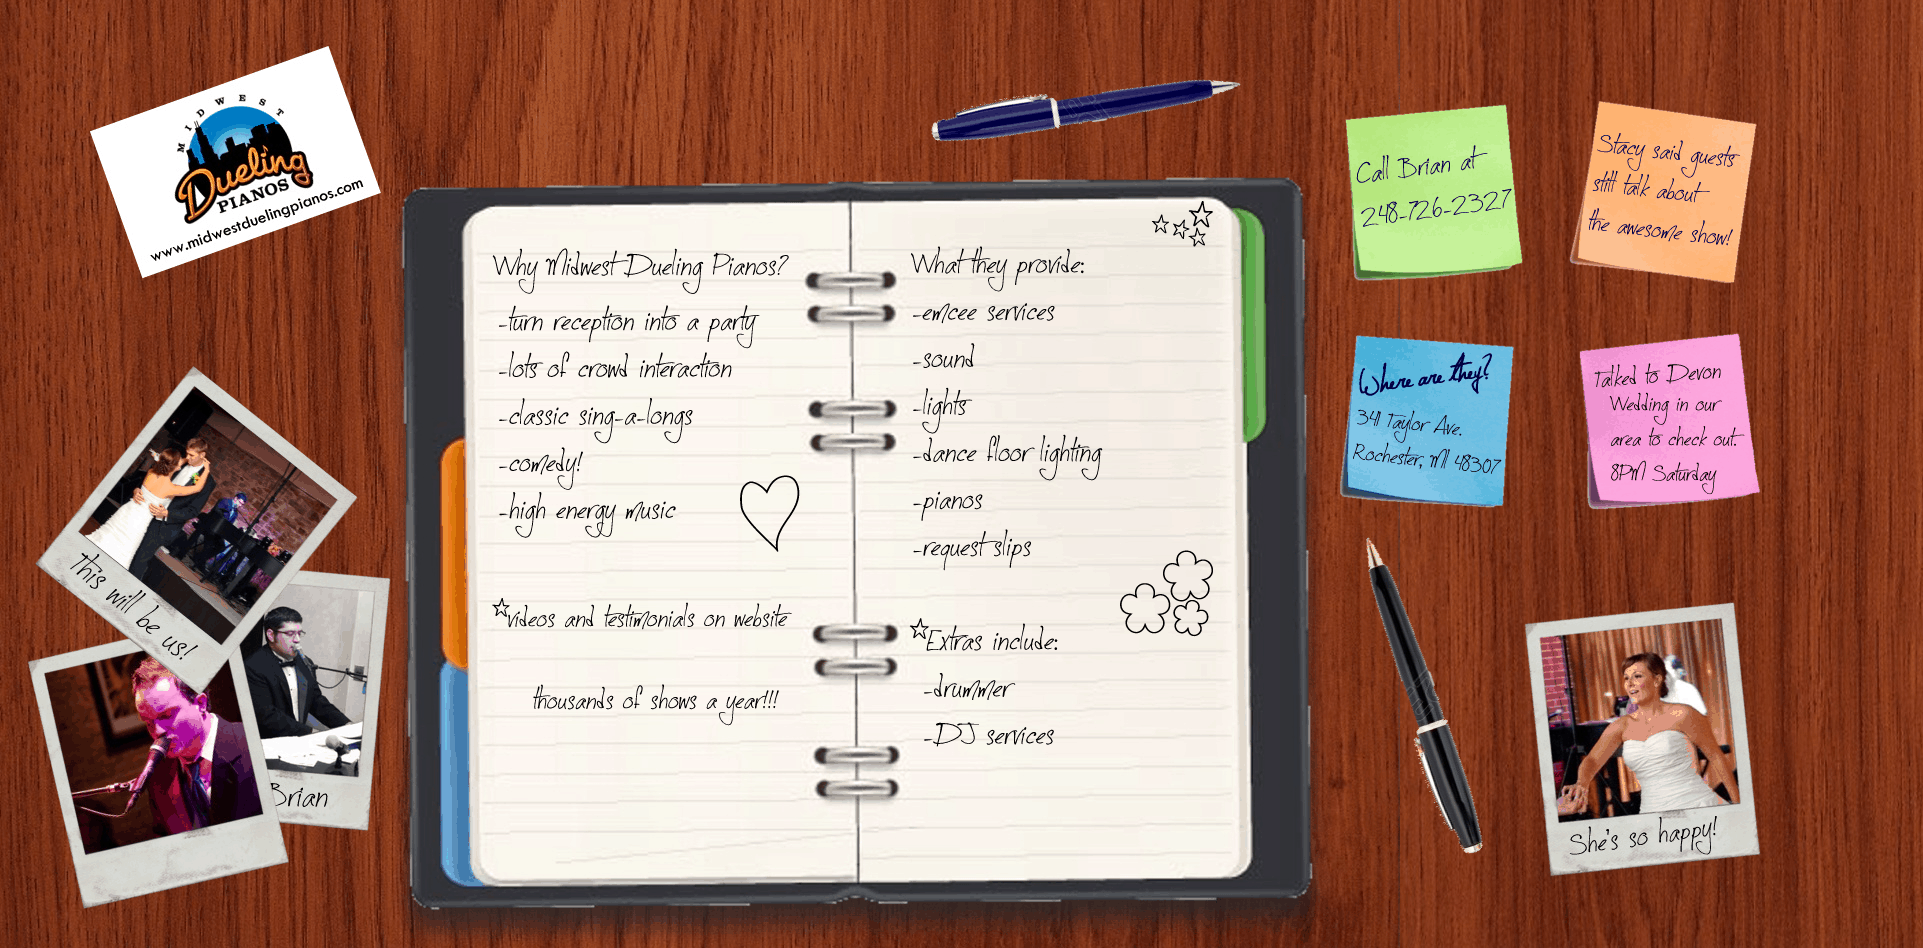 MIDWEST
Dueling
PIANOS
www.midwestduelingpianos.com
This will be us!
Brian
Why Midwest Dueling Pianos?
-turn reception into a party
-lots of crowd interaction
-classic sing-a-longs
-comedy!
-high energy music
videos and testimonials on website
thousands of shows a year!!!
What they provide:
-emcee services
-sound
-lights
-dance floor lighting
-pianos
-request slips
Extras include:
-drummer
-DJ services
Call Brian at
248-726-2327
Stacy said guests
still talk about
the awesome show!
Where are they?
341 Taylor Ave.
Rochester, MI 48307
Talked to Devon
Wedding in our
area to check out.
8PM Saturday
She's so happy!